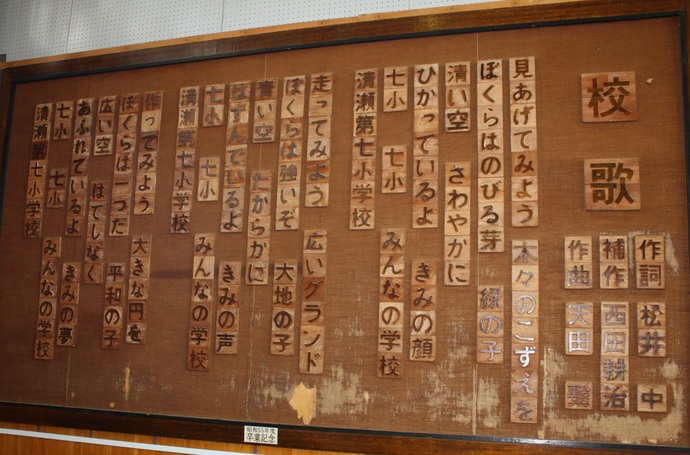 校歌
作詞 松井 中
補作 西田耕治
作曲 天田 繫
見あげてみよう 木々のこずえを
ぼくらはのびる芽 緑の子
清い空 さわやかに
ひかっているよ きみの顔
七小 七小 みんなの学校
清瀬第七小学校
走ってみよう 広いグランド
ぼくらは強いぞ 大地の子
青い空 たからかに
はずんでいるよ きみの声
七小 七小 みんなの学校
清瀬第七小学校
作ってみよう 大きな円を
ぼくらは一つだ 平和の子
広い空 はてしなく
あふれているよ きみの夢
七小 七小 みんなの学校
清瀬第七小学校
昭和55年度
卒業記念